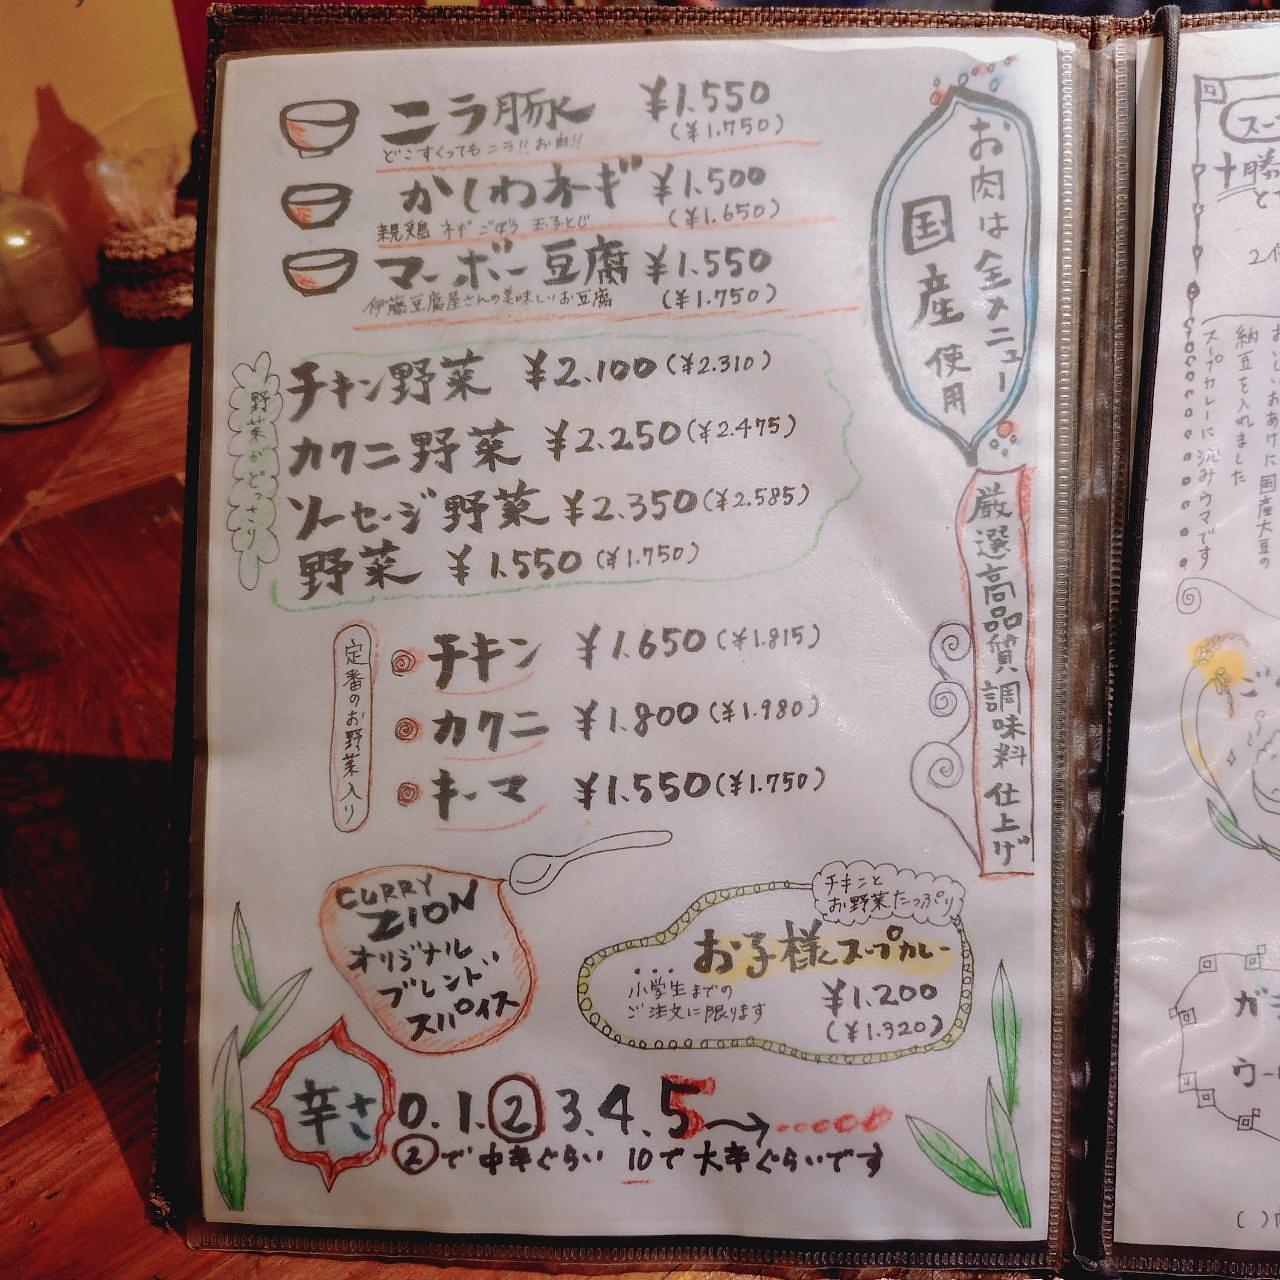 ニラ豚 ¥1.550
(¥1.750)
どこすくってもニラ!!お肉!!
かしわネギ ¥1.500
(¥1.650)
親鶏 ネギ ごぼう 玉子とじ
マーボー豆腐 ¥1.550
(¥1.750)
伊藤豆腐屋さんの美味しいお豆腐
お肉は全メニュー
国産使用
厳選高品質調味料仕上げ
野菜がどっさり
チキン野菜 ¥2.100(¥2.310)
カクニ野菜 ¥2.250(¥2.475)
ソーセージ野菜 ¥2.350(¥2.585)
野菜 ¥1.550(¥1.750)
定番のお野菜入り
チキン ¥1.650(¥1.815)
カクニ ¥1.800(¥1.980)
キーマ ¥1.550(¥1.750)
CURRY
ZION
オリジナル
ブレンド
スパイス
チキンと
お野菜たっぷり
お子様スープカレー
小学生までの
ご注文に限ります
¥1.200
(¥1.320)
辛さ 0.1.②3.4.5〜→
②で中辛ぐらい 10で大辛ぐらいです
スー
十勝
と
納豆を入れました
スープカレーに沈みウマです
ご
ガ
ウー